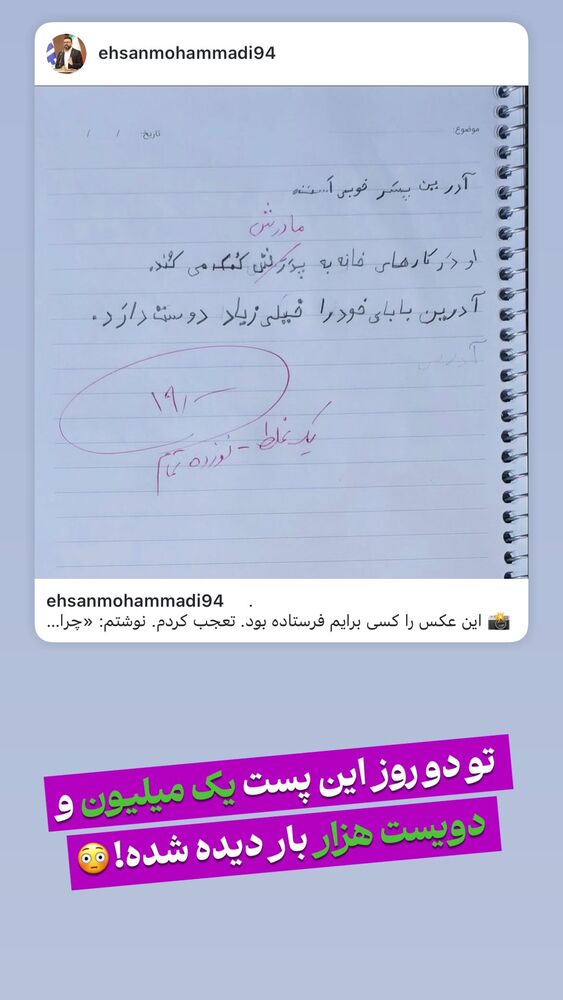 ehsanmohammadi94
موضوع:
تاریخ: / /
آدرین پسر خوبی است.
مادرش
او در کارهای خانه به پدرش کمک می کند.
آدرین بابای خود را خیلی زیاد دوست دارد.
آدرین
۱۹/-
یک غلط - نوزده تمام
ehsanmohammadi94 .
📸 این عکس را کسی برایم فرستاده بود. تعجب کردم. نوشتم: «چرا...
تو دو روز این پست یک میلیون و
دویست هزار بار دیده شده!😳